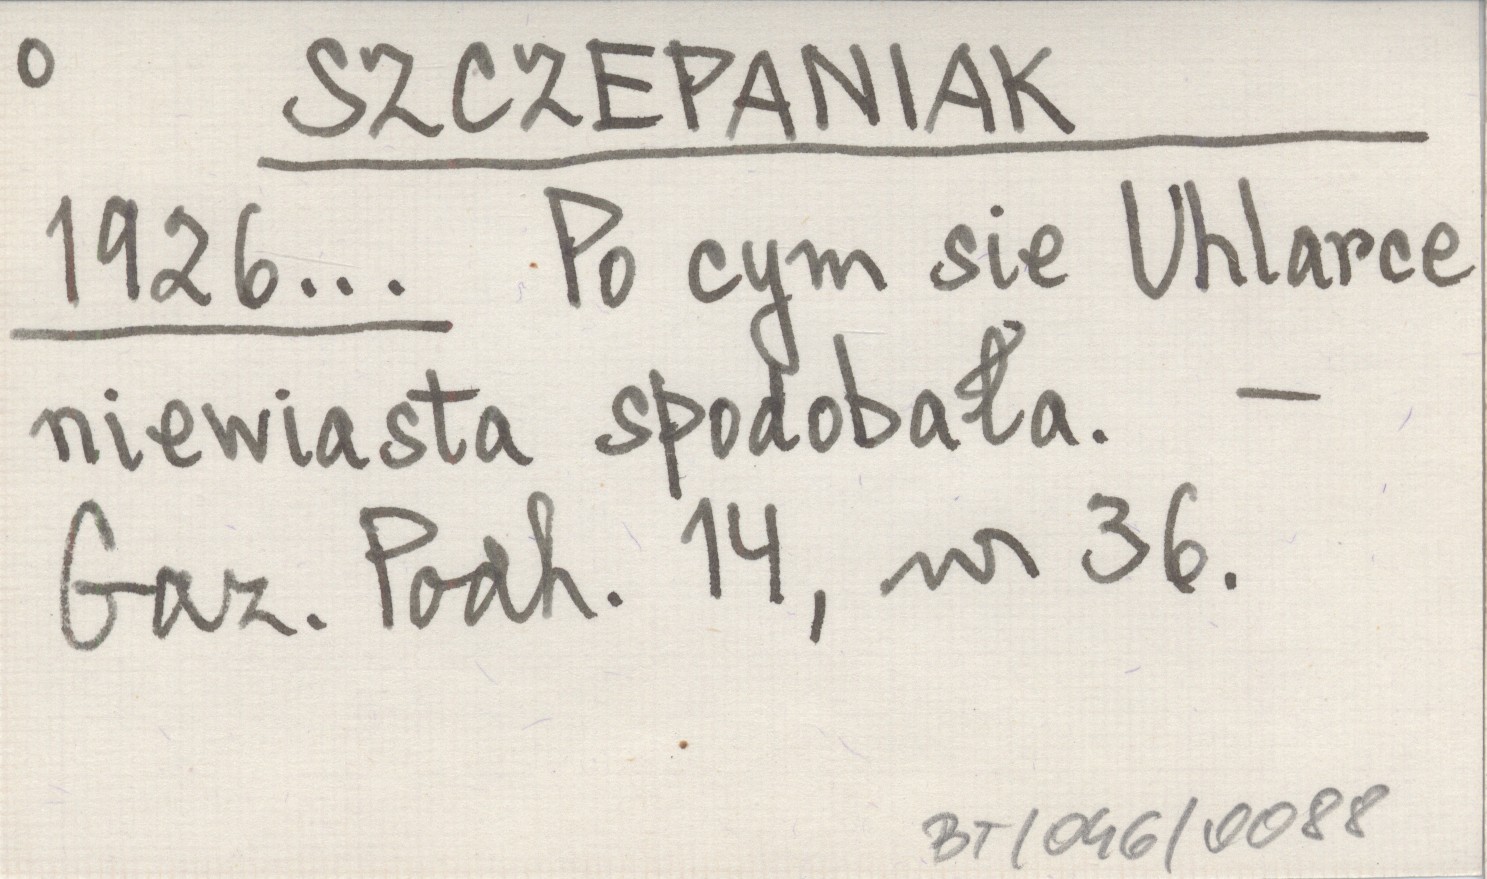 o SZCZEPANIAK
1926... Po cym sie Uhlarce
niewiasta spodobała. —
Gaz. Podh. 14, nr 36.
BT/046/0088